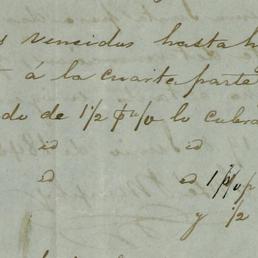 s vencidos hasta h
á la cuarta parte
do de 1/2 p% lo cubra
id id
id id 1 p%
y 1/2